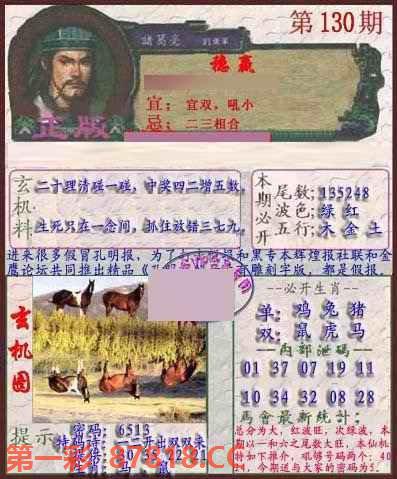 第130期
諸葛亮
稳赢
宜：宜双，吼小
忌：二三相合
正版
玄机料
二十理清碰一碰，中奖四二增五数。
生死只在一念间，抓住放错三七九。
本期必开
尾数：135248
波色：绿 红
五行：木 金 土
进来很多假冒孔明报，为了
和黑专本辉煌报社联和金
鹰论坛共同推出精品《孔明
有雕刻字版，都是假报。
玄机图
--必开生肖--
单：鸡 兔 猪
双：鼠 虎 马
--内部泄码--
01 37 07 19 11
10 34 32 08 28
马會最新統計：
总分为大，红波旺，次绿波，本
期以一和六之尾数大旺，本仙机
特如下推介，吼够号码两个：40
24，今期送大家的密码为5.
提示
密码：6513
特码诗：一二开出双双来
30 35 22 21
马 鼠
第一彩 87818.CC